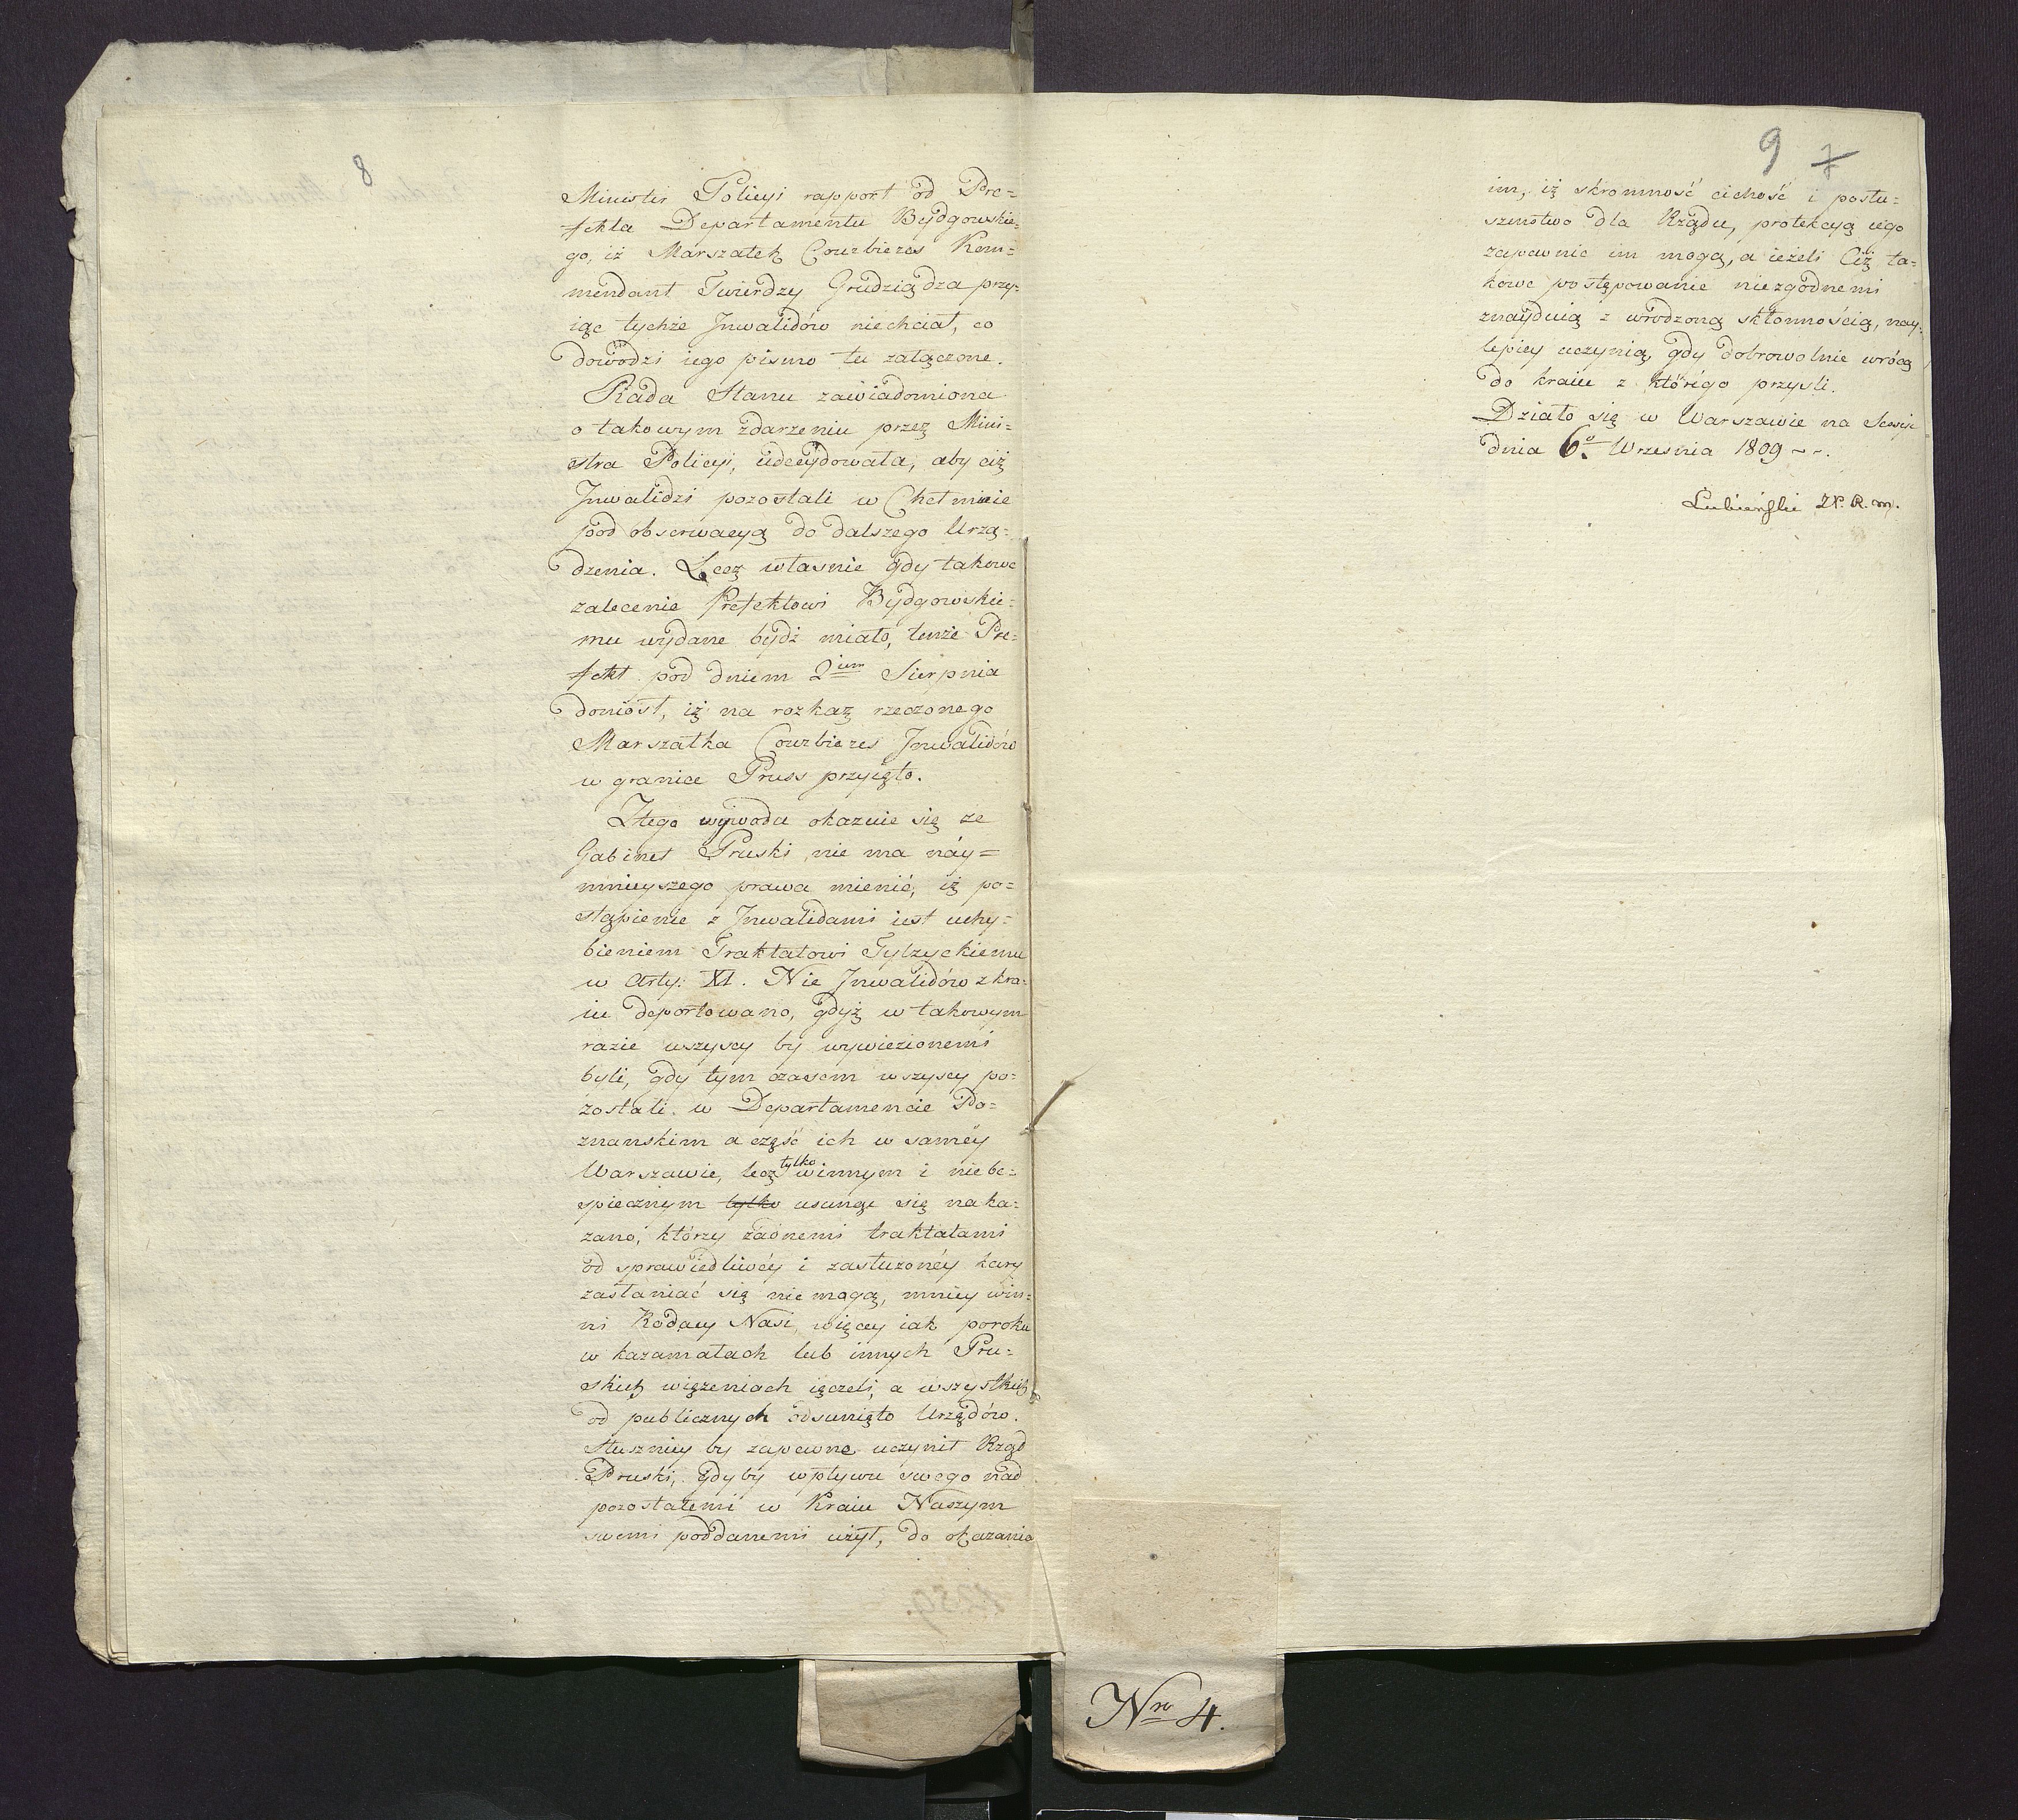 8
Minister Policyi rapport od Pre=
fekta Departamentu Bydgowskie=
go, iż Marszałek Courbieres Kom=
mendant Twierdzy Grudziądza przy=
iąc tychże Jnwalidów niechciał, co
dowodzi iego pismo tu załączone.
Rada Stanu zawiadomiona
o takowym zdarzeniu przez Mini=
stra Policyi, udecydowała, aby ciż
Jnwalidzi pozostali w Chełmnie
pod obserwacyą do dalszego Urzą=
dzenia. Lecz własnie gdy takowe
zalecenie Prefektowi Bydgowskie=
mu wydane bydź miało, tenże Pre=
fekt pod dniem 2im Sierpnia
doniosł, iż na rozkaz rzeczonego
Marszałka Courbieres Jnwalidów
w granice Pruss przyięto.
Ztego wywodu okazuie się że
Gabinet Pruski nie ma náy=
mnieyszego prawa mienić, iż po=
stąpienie z Jnwalidami iest uchy=
bieniem Traktatowi Tylzyckiemu
w Arty: XI. Nie Jnwalidów z kra=
iu deportowano, gdyż w takowym
razie wszyscy by wywiezionemi
byli, gdy tym czasem wszyscy po=
zostali w Departamencie Po=
znanskim a część ich w saméy
Warszawie, lecz tylko winnym i niebe=
spiecznym tylko usunąc się naka=
zano, którzy żadnemi traktatami
od sprawiedliwéy i zasłużonéy kary
zasłaniać się nie mogą, mniey win=
ni Rodacy Nasi, więcey iak poroku
w kazamatach lub innych Pru=
skich więzeniach ięczeli, a wszystkich
od publicznych odsunięto Urzędów.
Słuszniey by zapewne uczynił Rząd
Pruski, gdyby wpływu swego nad
pozostałemi w Kraiu Naszym
swemi poddanemi użył, do okazania
9 7
im, iż skromność cichość i posłu=
szenstwo dla Rządu, protekcyą iego
zapewnic im mogą, a ieżeli Ciż ta=
kowe postępowanie niezgodnemi
znayduią z wrodzoną skłonnością, nay=
lepiey uczynią, gdy dobrowolnie wrócą
do kraiu z którégo przyśli.
Działo się w Warszawie na Sessyi
dnia 6o. Września 1809 ~~.
Lubieński
Nro 4.